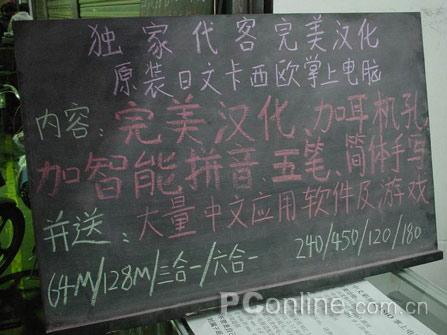 独家代客完美汉化
原装日文卡西欧掌上电脑
内容：完美汉化、加耳机孔
加智能拼音、五笔、简体手写
并送：大量中文应用软件及游戏
64M/128M/三合一/六合一 240/450/120/180
PConline.com.cn